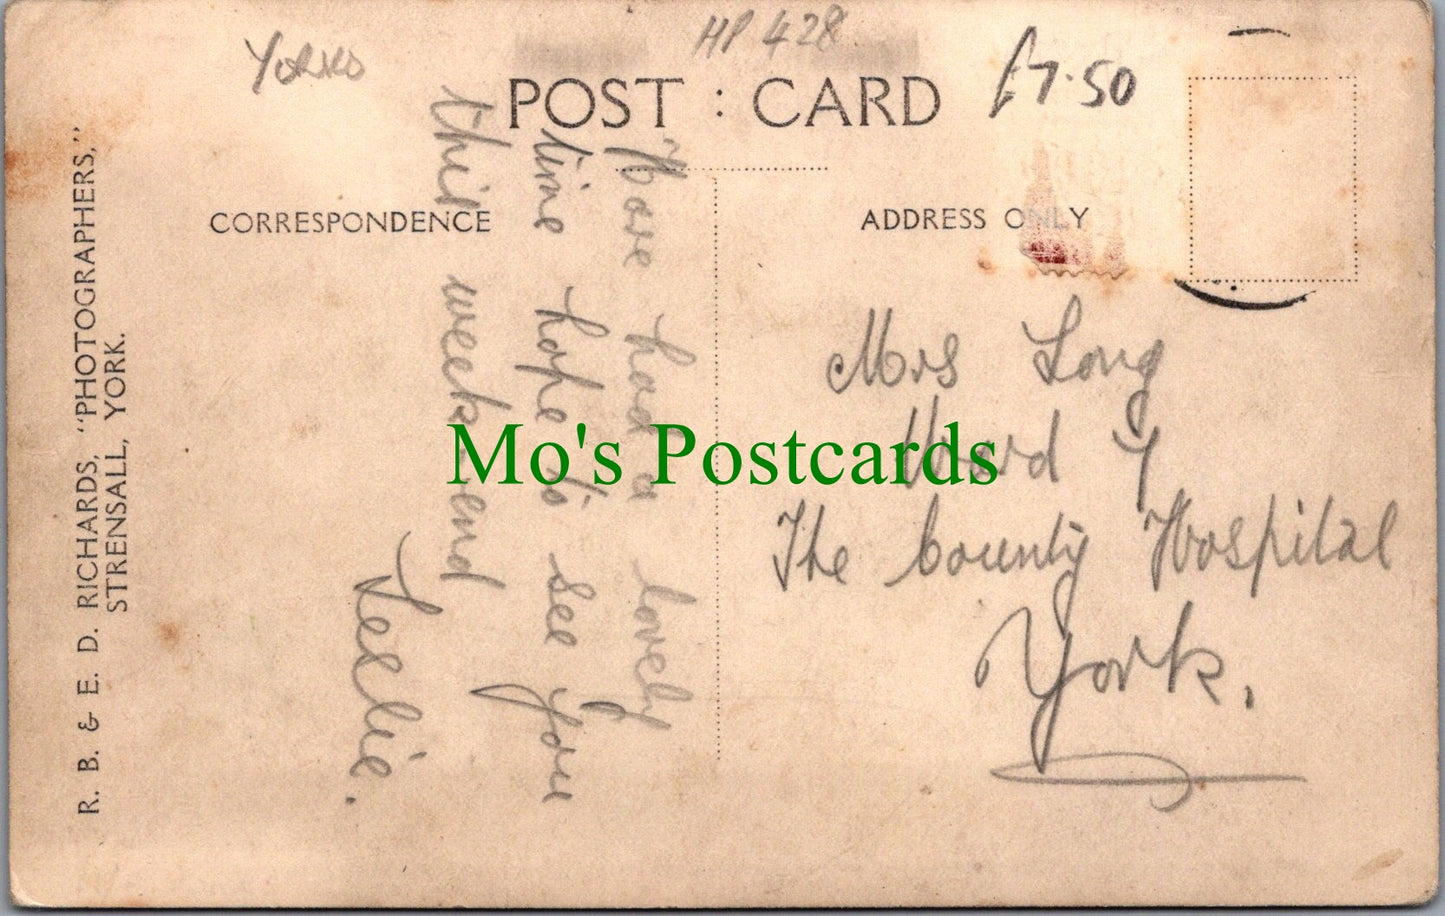 Yorks
HP 428
£7.50
POST : CARD
CORRESPONDENCE
ADDRESS ONLY
R. B. & E. D. RICHARDS, "PHOTOGRAPHERS,"
STRENSALL, YORK.
Have had a lovely
time hope to see you
this week end
Leslie.
Mrs Long
Ward 4
The County Hospital
York.
Mo's Postcards